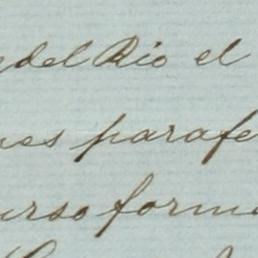 del Rio el
nes parafe
urso form